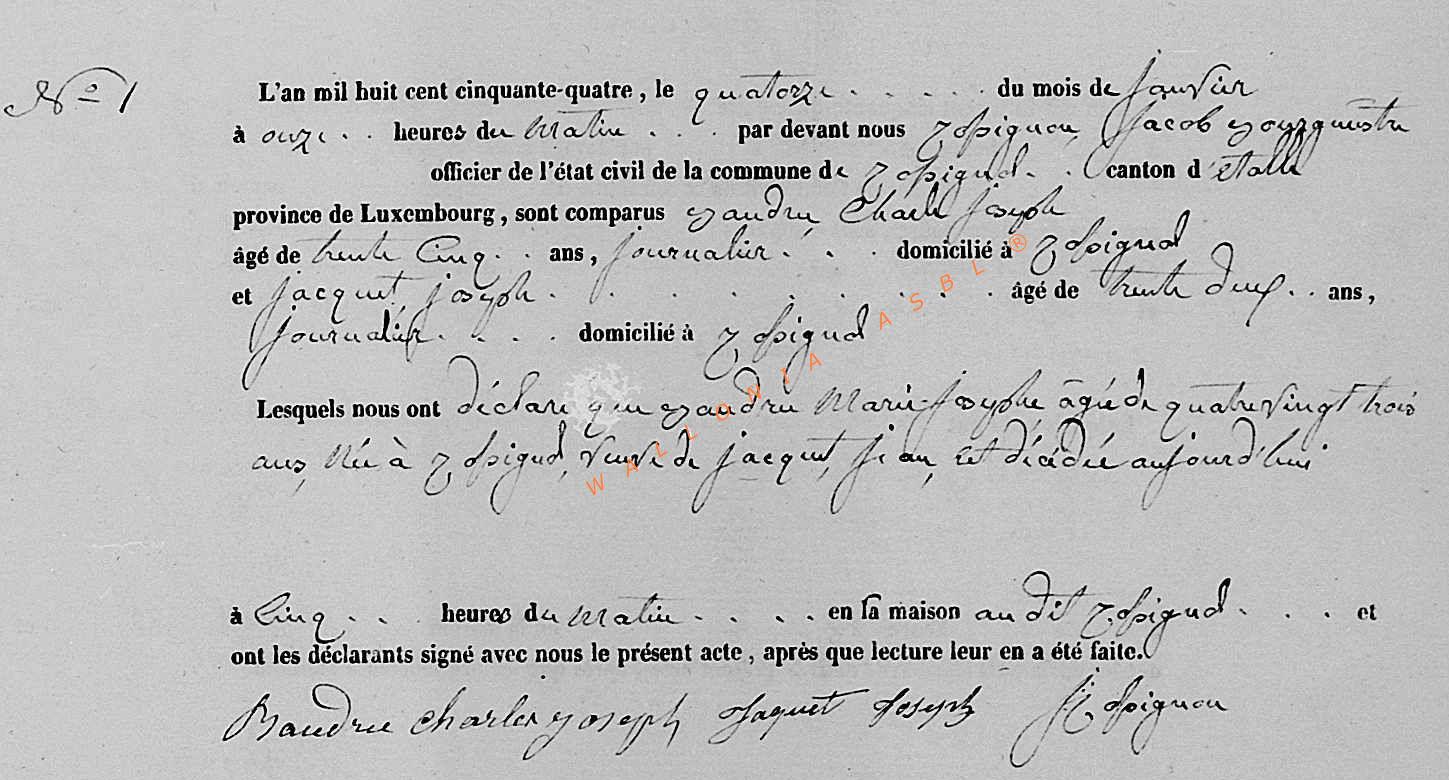 N° 1
L'an mil huit cent cinquante-quatre, le quatorze . . . . . du mois de Janvier
à onze . . heures du Matin . . . par devant nous Rossignon, Jacob Bourgmestre
officier de l'état civil de la commune de Rossignol . . canton d'Etalle
province de Luxembourg, sont comparus Baudru, Charle Joseph
âgé de trente Cinq . . ans, journalier . . . domicilié à Rossignol
et Jacquet, joseph . . . . . . . . . âgé de trente deux . . ans,
journalier . . . . domicilié à Rossignol
Lesquels nous ont déclaré que Baudru Marie-Josephe âgée de quatre vingt trois
ans, Née à Rossignol, veuve de jacquet, jean, est décédée aujourd'hui
à Cinq . . . heures du Matin . . . . en sa maison au dit Rossignol . . . et
ont les déclarants signé avec nous le présent acte, après que lecture leur en a été faite.
Baudru Charles Joseph Jaquet Joseph J Rossignon
WALLONIA ASBL ®